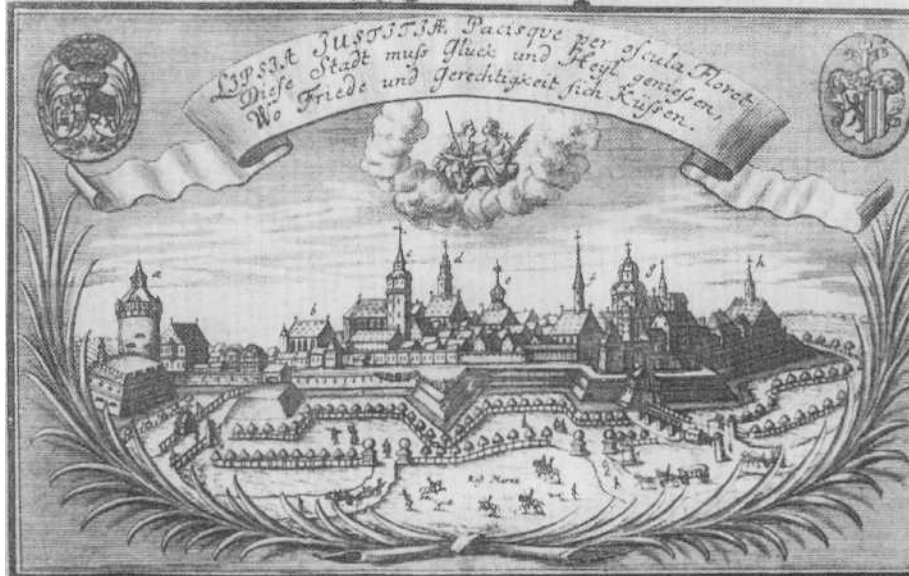 LIPSIA JUSTITIÆ Pacisque per oscula Floret
Diese Stadt muss Glück und Heyl geniessen,
Wo Friede und Gerechtigkeit sich Küssen.
a
b
c
d
e
f
g
h